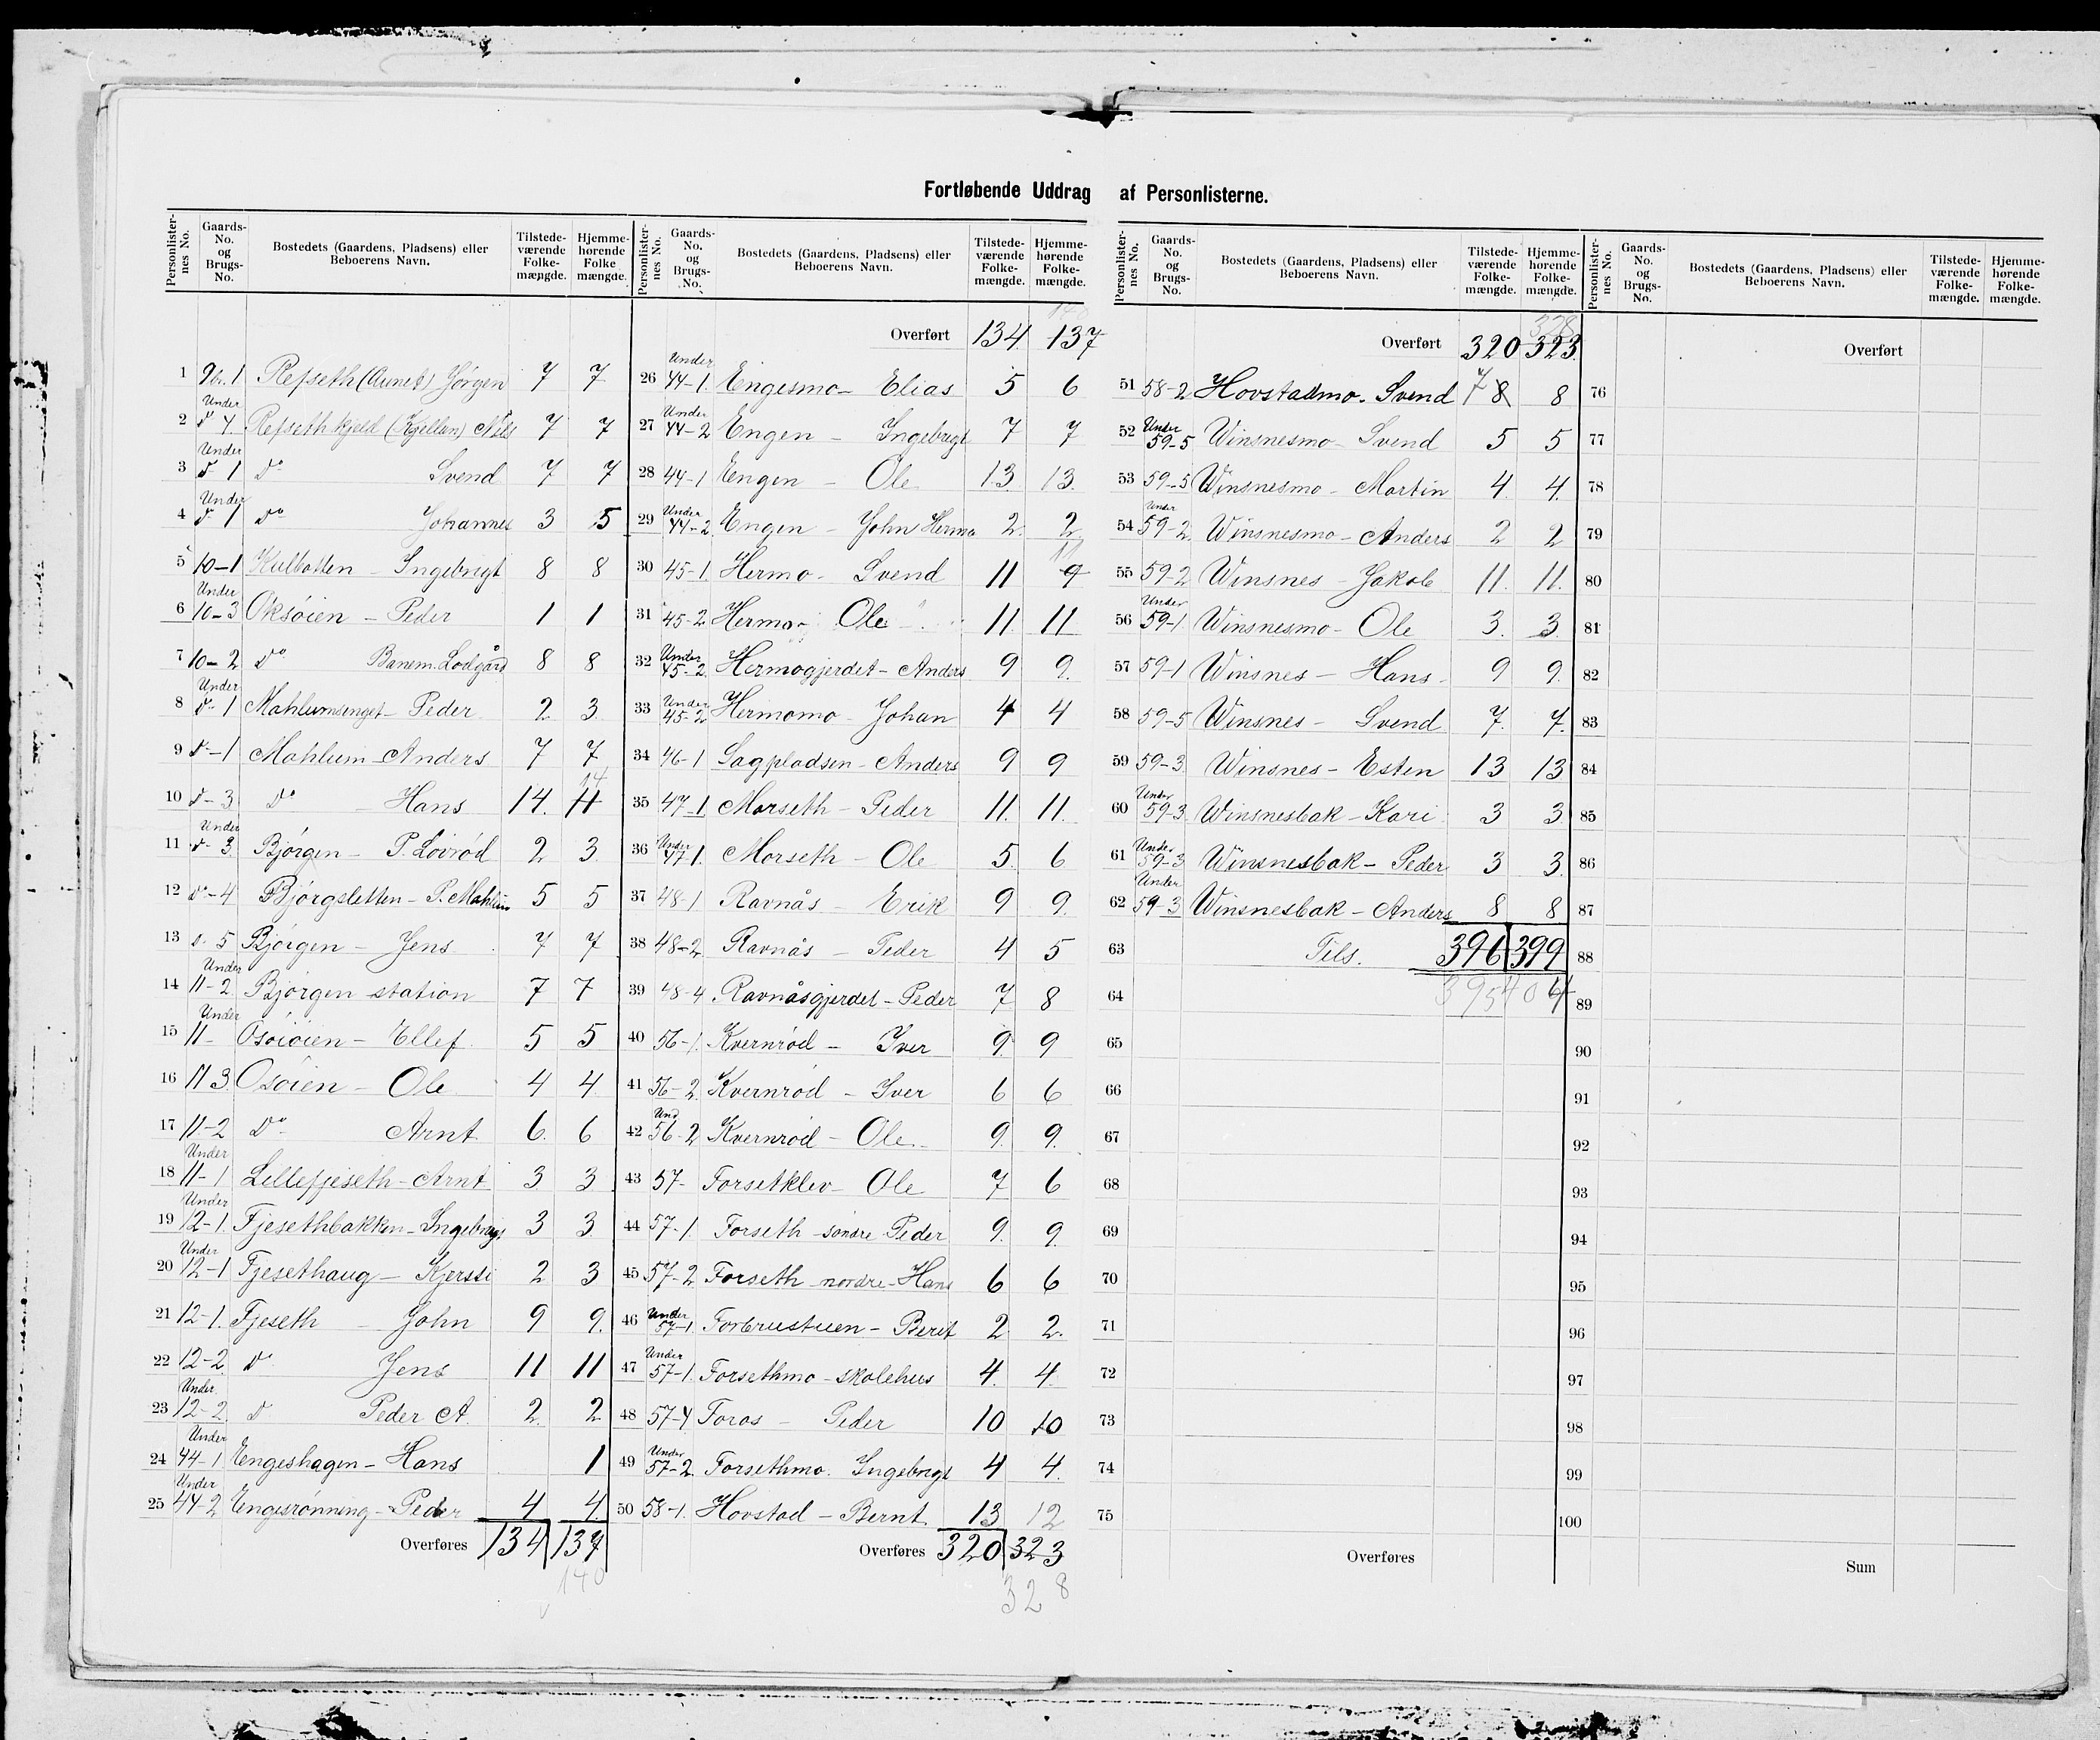 Fortløbende Uddrag af Personlisterne.
Personlisternes No. Gaards-No. og Brugs-No. Bostedets (Gaardens, Pladsens) eller Beboerens Navn. Tilstedeværende Folkemængde. Hjemmehørende Folkemængde.
1 Refseth (Aunet) Jørgen 7 7
2 Under 4 Refsethkjeld (Kjellan) Nils 7 7
3 Under do 1 do Svend 7 7
4 Under do 1 do Johannes 3 5
5 10-1 Kulbotten - Ingebrigt 8 8
6 Under 10-3 Oksöien - Peder 1 1
7 10-2 do Banem. Lodgård 8 8
8 Under do 1 Mahlumsenget - Peder 2 3
9 do-1 Mahlum - Anders 7 7
10 do-3 do - Hans 14. 11 14
11 Under do-3 Bjørgen - P. Lövröd 2 3
12 do-4 Bjørgsletten - P. Mahlum 5 5
13 do 5 Bjørgen - Jens 7 7
14 Under 11-2 Bjørgen station 7 7
15 Under 11- Osöiöien - Ellef 5 5
16 11 3 Osöien - Ole 4 4
17 11-2 do Arnt 6. 6
18 Under 11-1 Lillefjeseth - Arnt 3 3
19 Under 12-1. Fjesethbakken - Ingebrigt 3 3
20 Under 12-1 Fjesethaug - Kjersti 2 3
21 12-1. Fjeseth - John 9 9.
22 12-2 do Jens 11 11
23 Under 12-2 do Peder A. 2. 2
24 Under 44-1 Engeshagen - Hans 1
25 Under 44-2 Engesrønning - Peder 4 4.
Overføres 134 137
140
Personlisternes No. Gaards-No. og Brugs-No. Bostedets (Gaardens, Pladsens) eller Beboerens Navn. Tilstedeværende Folkemængde. Hjemmehørende Folkemængde.
Overført 134 137 140
26 Under 44-1. Engesmo - Elias 5 6
27 Under 44-2 Engen - Ingebrigt 7 7
28 44-1 Engen - Ole 13 13
29 Under 44-2. Engen - John Hermo 2 2
30 45-1. Hermo - Svend 11 9 11
31 45-2 Hermo - Ole 11 11
32 Under 45-2. Hermogjerdet - Anders 9 9.
33 Under 45-2 Hermomo - Johan 4 4
34 46-1 Sagpladsen - Anders 9 9
35 47-1 Morseth - Peder 11. 11.
36 Under 47-1. Morseth - Ole 5. 6
37 48-1 Ravnås - Erik 9 9.
38 48-2 Ravnås - Peder 4 5
39 48-4 Ravnåsgjerdet - Peder 7 8
40 56-1. Kvernrød - Iver 9. 9
41 56-2 Kvernrød - Iver 6 6
42 Und 56-2 Kvernrød - Ole 9. 9.
43 57- Forsetklev - Ole 7 6
44 57-1 Forseth søndre Peder 9. 9.
45 57-2 Forseth nordre - Hans 6 6
46 Under 57-1 Forbrustuen - Berit 2 2.
47 Under 57-1. Forsethmo - skolehus 4. 4.
48 57-4 Foros - Peder 10 10
49 Under 57-2. Forsethmo. Ingebrigt 4 4.
50 58-1. Hovstad - Bernt 13 12
Overføres 320 323
328
Personlisternes No. Gaards-No. og Brugs-No. Bostedets (Gaardens, Pladsens) eller Beboerens Navn. Tilstedeværende Folkemængde. Hjemmehørende Folkemængde.
Overført 320 323 328
51 58-2 Hovstadmo. Svend 7 8 8
52 Under 59-5 Winsnesmo - Svend 5 5
53 59-5 Winsnesmo - Martin 4. 4.
54 Under 59-2 Winsnesmo - Anders 2 2
55 59-2 Winsnes - Jakob 11. 11.
56 Under 59-1. Winsnesmo - Ole 3. 3
57 59-1 Winsnes - Hans - 9 9.
58 59-5 Winsnes - Svend 7. 7.
59 59-3 Winsnes - Esten 13 13
60 Under 59-3. Winsnesbak - Kari 3 3
61 Under 59-3 Winsnesbak - Peder 3 3.
62 Under 59-3 Winsnesbak - Anders 8 8
63 Tils. 396 399
64 395 404
65
66
67
68
69
70
71
72
73
74
75
Overføres
Personlisternes No. Gaards-No. og Brugs-No. Bostedets (Gaardens, Pladsens) eller Beboerens Navn. Tilstedeværende Folkemængde. Hjemmehørende Folkemængde.
Overført
76
77
78
79
80
81
82
83
84
85
86
87
88
89
90
91
92
93
94
95
96
97
98
99
100
Sum